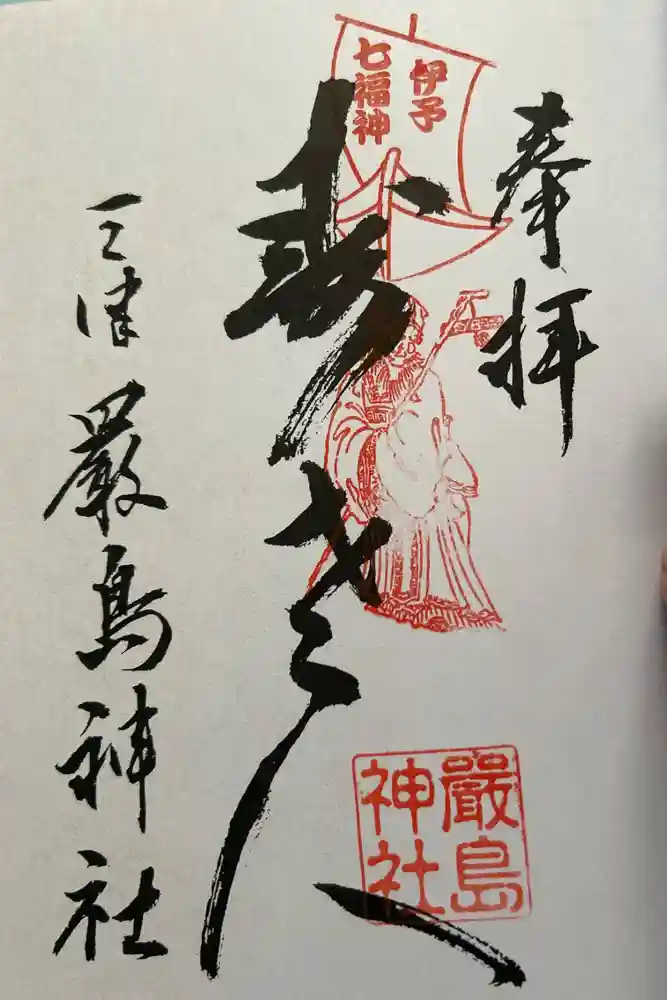 奉拝
伊予
七福神
寿老人
三津 厳島神社
嚴島
神社